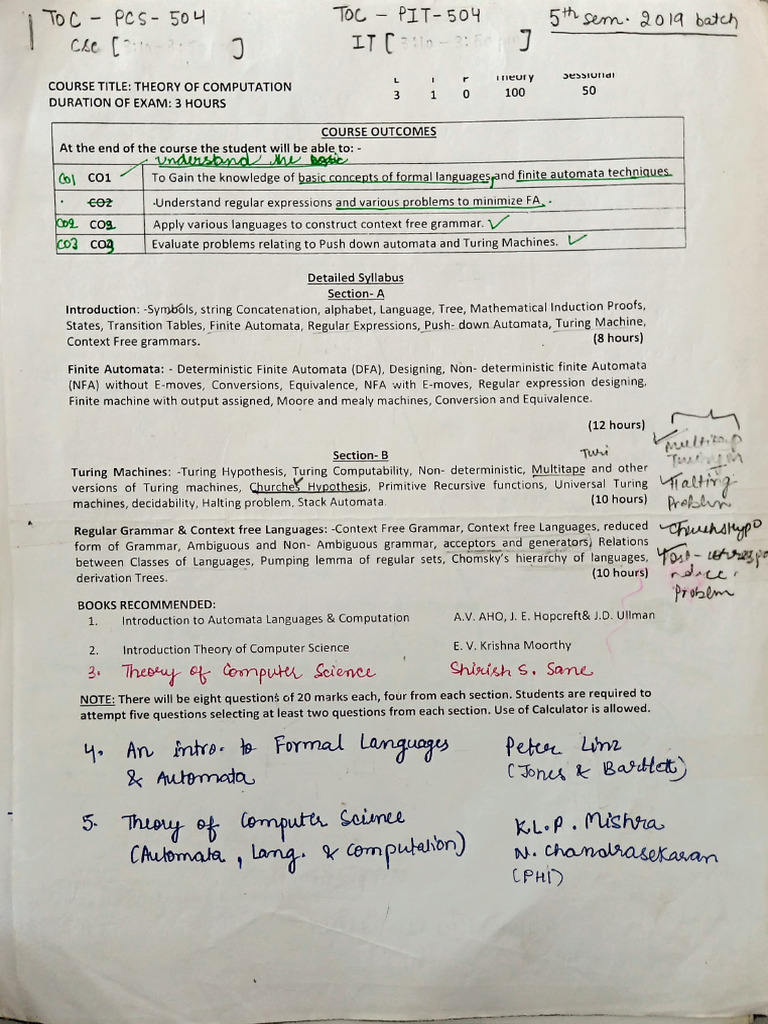 TOC - PCS - 504 TOC - PIT - 504 5th sem. 2019 batch
CSC [ ] IT [ ]
L T P Theory Sessional
COURSE TITLE: THEORY OF COMPUTATION 3 1 0 100 50
DURATION OF EXAM: 3 HOURS
COURSE OUTCOMES
At the end of the course the student will be able to: -
understand the basic
CO1 CO1 To Gain the knowledge of basic concepts of formal languages, and finite automata techniques.
CO2 Understand regular expressions and various problems to minimize FA.
CO2 CO2 Apply various languages to construct context free grammar.
CO3 CO3 Evaluate problems relating to Push down automata and Turing Machines.
Detailed Syllabus
Section- A
Introduction: -Symbols, string Concatenation, alphabet, Language, Tree, Mathematical Induction Proofs,
States, Transition Tables, Finite Automata, Regular Expressions, Push- down Automata, Turing Machine,
Context Free grammars. (8 hours)
Finite Automata: - Deterministic Finite Automata (DFA), Designing, Non- deterministic finite Automata
(NFA) without E-moves, Conversions, Equivalence, NFA with E-moves, Regular expression designing,
Finite machine with output assigned, Moore and mealy machines, Conversion and Equivalence.
(12 hours)
Section- B
Turi
Turing Machines: -Turing Hypothesis, Turing Computability, Non- deterministic, Multitape and other
versions of Turing machines, Churches Hypothesis, Primitive Recursive functions, Universal Turing
machines, decidability, Halting problem, Stack Automata. (10 hours)
Halting
Problem
Regular Grammar & Context free Languages: -Context Free Grammar, Context free Languages, reduced
form of Grammar, Ambiguous and Non- Ambiguous grammar, acceptors and generators, Relations
between Classes of Languages, Pumping lemma of regular sets, Chomsky's hierarchy of languages,
derivation Trees. (10 hours)
Problem
BOOKS RECOMMENDED:
1. Introduction to Automata Languages & Computation A.V. AHO, J. E. Hopcreft& J.D. Ullman
2. Introduction Theory of Computer Science E. V. Krishna Moorthy
3. Theory of Computer Science Shirish S. Sane
NOTE: There will be eight questions of 20 marks each, four from each section. Students are required to
attempt five questions selecting at least two questions from each section. Use of Calculator is allowed.
4. An intro. to Formal Languages Peter Linz
& Automata (Jones & Bartlett)
5. Theory of Computer Science K.L.P. Mishra
(Automata, Lang. & computation) N. Chandrasekaran
(PHI)